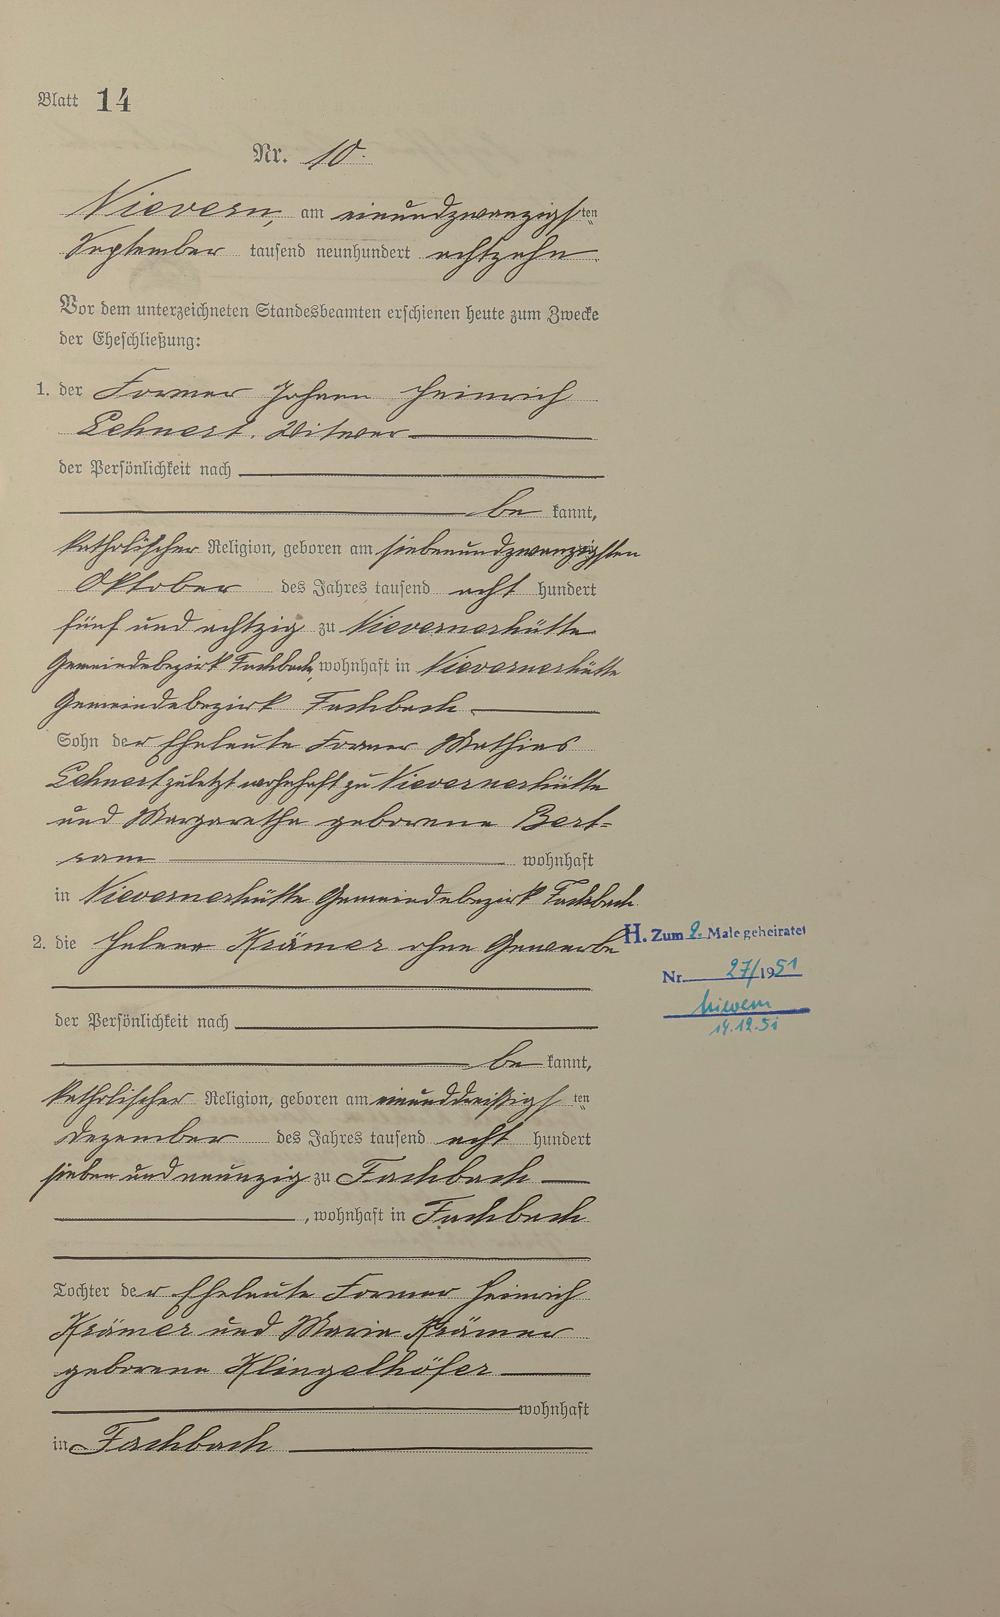 Blatt 14
Nr. 10.
Nievern, am einundzwanzigsten
September tausend neunhundert achtzehn
Vor dem unterzeichneten Standesbeamten erschienen heute zum Zwecke
der Eheschließung:
1. der Former Johann Heinrich
Lehnert. Witwer
der Persönlichkeit nach
be kannt,
katholischer Religion, geboren am siebenundzwanzigsten
Oktober des Jahres tausend acht hundert
fünf und achtzig zu Nievernerhütte
Gemeindebezirk Fachbach, wohnhaft in Nievernerhütte
Gemeindebezirk Fachbach
Sohn der Eheleute Former Mathias
Lehnert zuletzt wohnhaft zu Nievernerhütte
und Margaretha geborene Bert=
ram wohnhaft
in Nievernerhütte Gemeindebezirk Fachbach.
2. die Helene Krämer ohne Gewerbe
H. Zum 2. Male geheiratet
Nr. 27/1951
Nievern
14.12.51
der Persönlichkeit nach
be kannt,
katholischer Religion, geboren am einunddreissigsten
Dezember des Jahres tausend acht hundert
sieben und neunzig zu Fachbach
, wohnhaft in Fachbach
Tochter der Eheleute Former Heinrich
Krämer und Maria Krämer
geborene Klingelhöfer
wohnhaft
in Fachbach